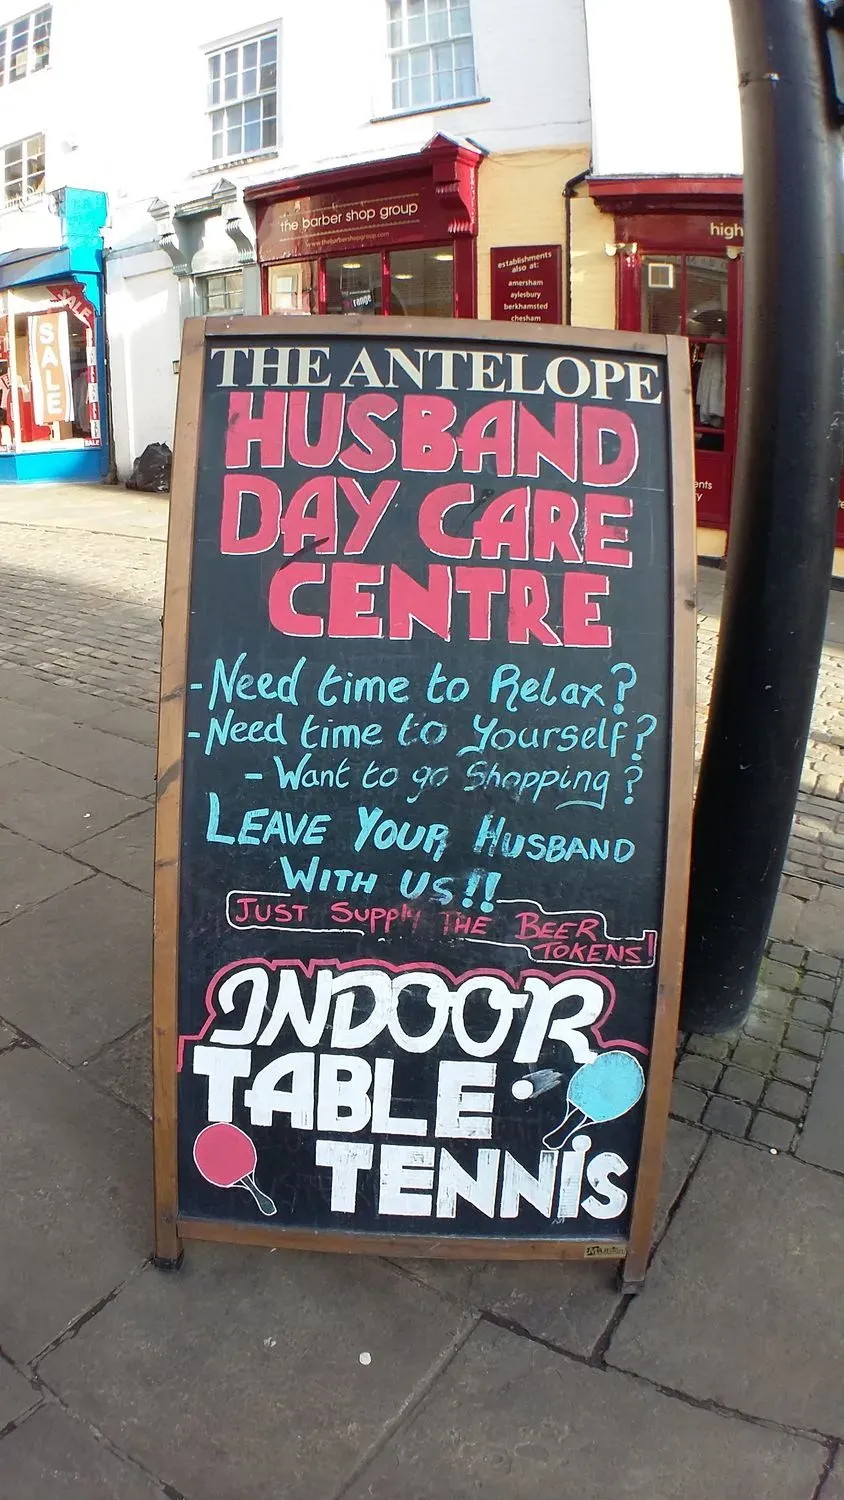 the barber shop group
www.thebarbershopgroup.com
establishments
also at:
amersham
aylesbury
berkhamsted
chesham
high
SALE
SALE
SALE
THE ANTELOPE
HUSBAND
DAY CARE
CENTRE
- Need time to Relax?
- Need time to Yourself?
- Want to go Shopping?
LEAVE YOUR HUSBAND
WITH US!!
JUST SUPPLY THE BEER
TOKENS!
INDOOR
TABLE
TENNIS